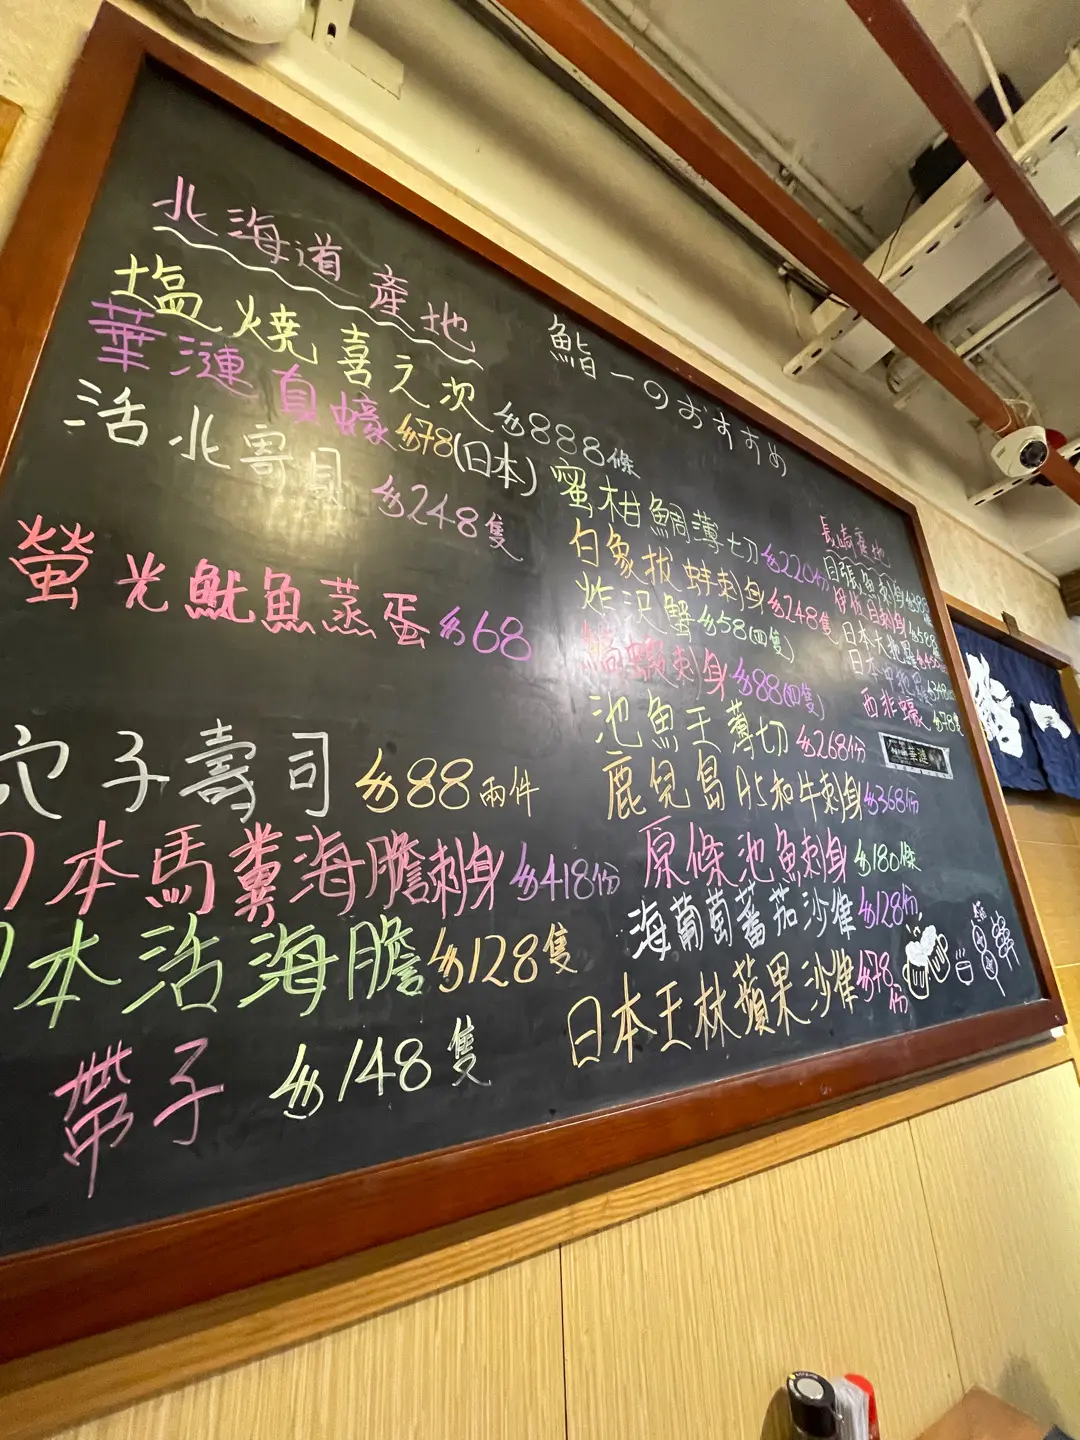 北海道產地
塩燒喜之次 $888條
華漣真蠔 $78(日本)
活北寄貝 $248隻
螢光魷魚蒸蛋 $68
穴子壽司 $88兩件
日本馬糞海膽刺身 $418份
日本活海膽 $128隻
帶子 $148隻
鮨一のおすすめ
蜜柑鯛薄切 $220份
白象拔蚌刺身 $248隻
炸沢蟹 $58(四隻)
蝦刺身 $88(四隻)
池魚王薄切 $268份
鹿兒島A5和牛刺身 $368份
原條池魚刺身 $180條
海葡萄蕃茄沙律 $128份
日本王林蘋果沙律 $78份
長崎產地
目張魚刺身
刺身 $588
日本大
日本中
西非蠔 $78隻
鮨一